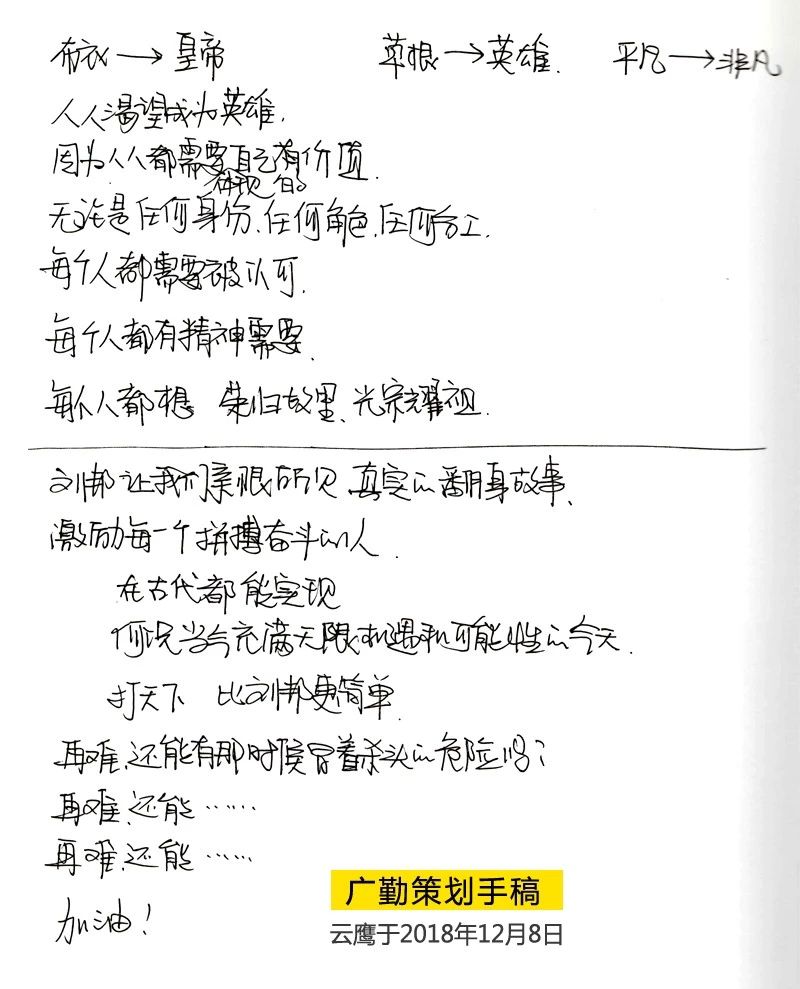 布衣→皇帝 草根→英雄. 平凡→非凡
人人渴望成为英雄.
因为人人都需要自己有价值.
体现 的
无论是任何身份、任何角色、任何分工.
每个人都需要被认可.
每个人都有精神需要.
每个人都想 荣归故里、光宗耀祖.
刘邦让我们亲眼所见 真实的翻身故事、
激励每一个拼搏奋斗的人.
在古代都能实现
何况当今充满无限机遇和可能性的今天.
打天下 比刘邦更简单.
再难、还能有那时候冒着杀头的危险吗?
再难、还能……
再难、还能……
加油!
广勤策划手稿
云鹰于2018年12月8日